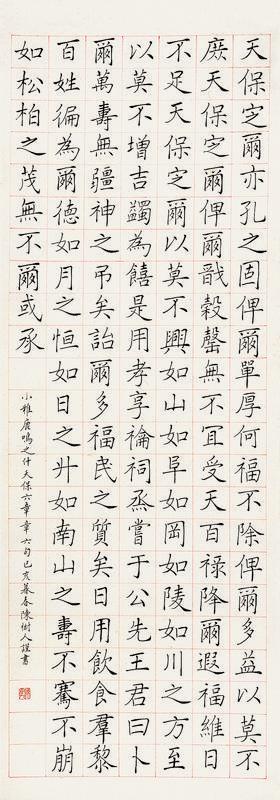 天保定爾亦孔之固俾爾單厚何福不除俾爾多益以莫不
庶天保定爾俾爾戩穀罄無不冝受天百祿降爾遐福維日
不足天保定爾以莫不興如山如阜如岡如陵如川之方至
以莫不增吉蠲為饎是用孝享禴祠烝嘗于公先王君曰卜
爾萬壽無疆神之弔矣詒爾多福民之質矣日用飲食羣黎
百姓徧為爾德如月之恒如日之升如南山之壽不騫不崩
如松柏之茂無不爾或承
小雅鹿鳴之什天保六章章六句己亥暮春陳樹人謹書